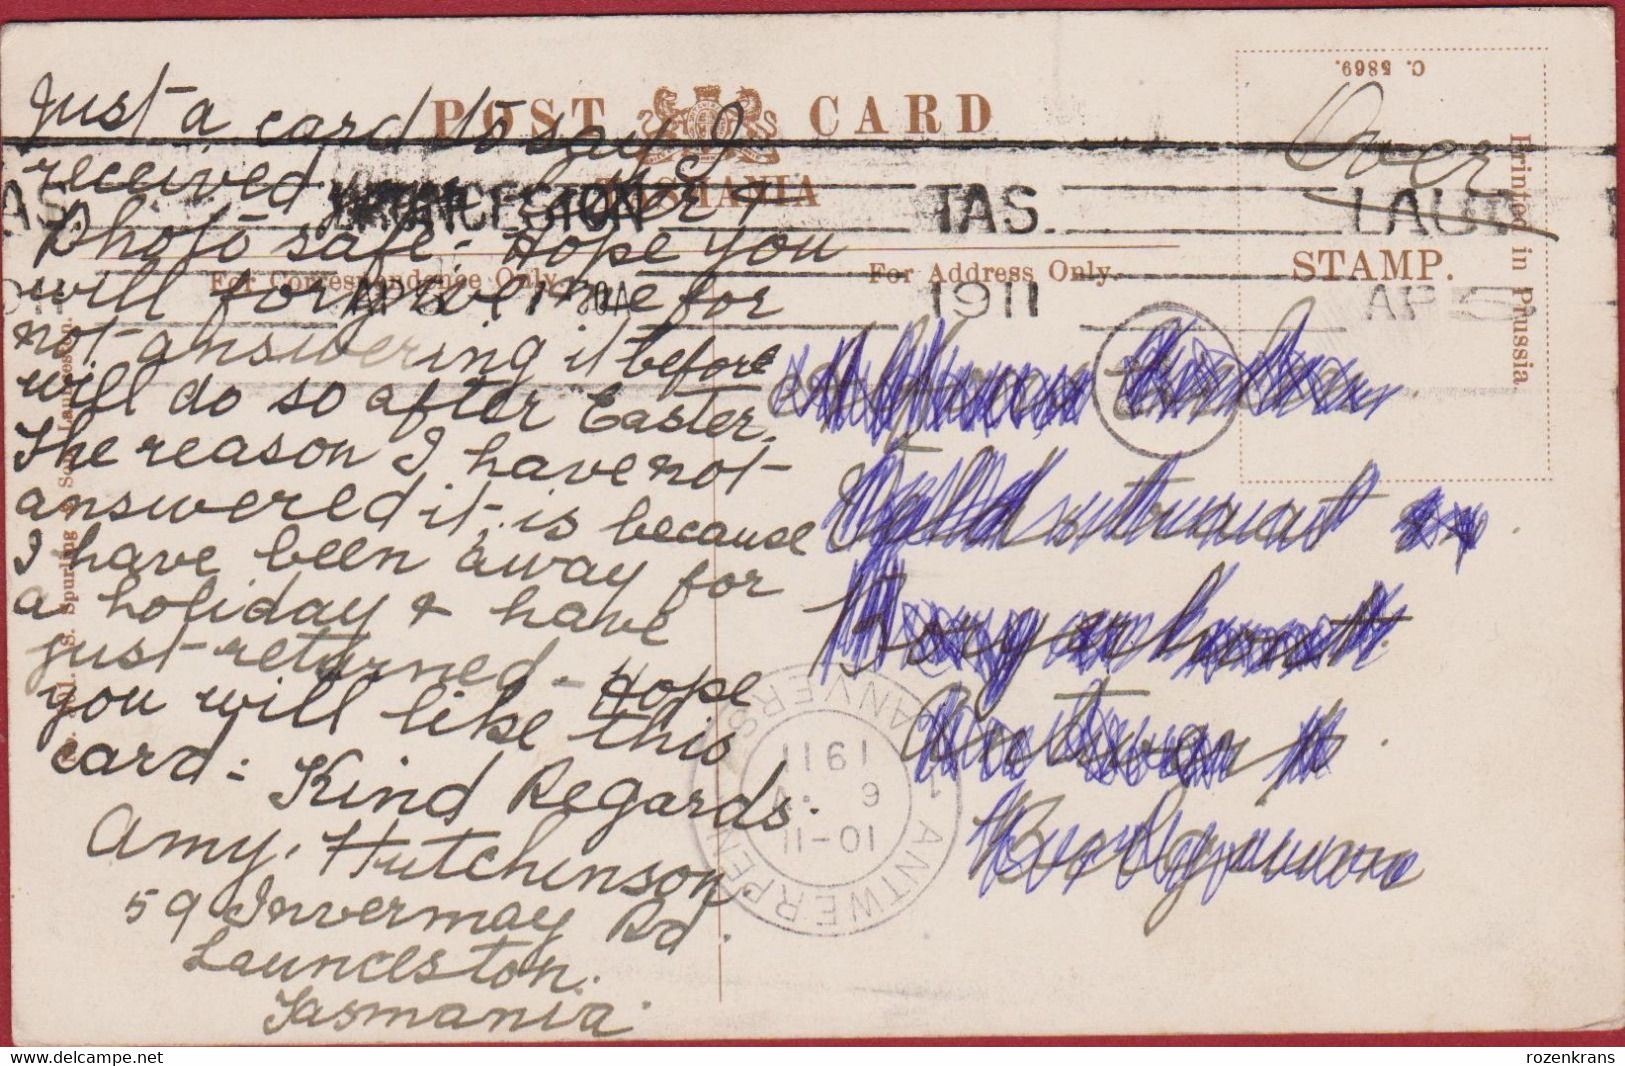 POST CARD
TASMANIA
For Correspondence Only.
For Address Only.
C. 5869.
STAMP.
Printed in Prussia
Over
LAUNCESTON TAS.
1911
AP 5
Just a card to say I
received your letter &
Photo safe - Hope you
will forgive me for
not answering it before
will do so after Easter.
The reason I have not
answered it, is because
I have been away for
a holiday & have
just returned - Hope
you will like this
card - Kind Regards.
Amy. Hutchinson.
59 Invermay Rd.
Launceston.
Tasmania.
Borgerhout
Antwerp
Belgium
1 ANTWERPEN ANVERS
10-11
1911
S. Spurling & Son, Launceston.
rozenkrans